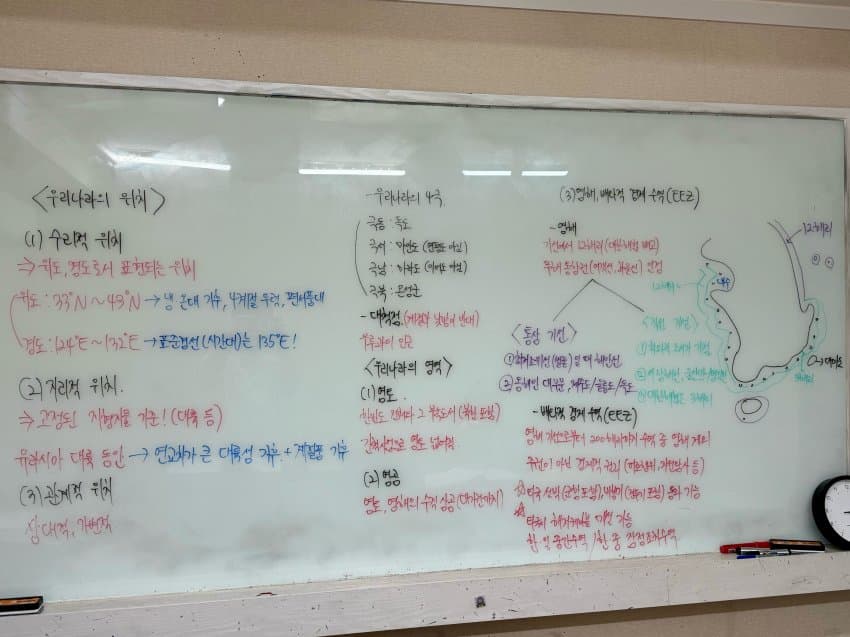 <우리나라의 위치>
(1) 수리적 위치
⇒ 위도, 경도로서 표현되는 위치
위도 : 33°N ~ 43°N → 냉·온대 기후, 4계절 뚜렷, 편서풍대
경도 : 124°E ~ 132°E → 표준경선(시간대)는 135°E!
(2) 지리적 위치.
⇒ 고정된 지형지물 기준! (대륙 등)
유라시아 대륙 동안 → 연교차가 큰 대륙성 기후 + 계절풍 기후
(3) 관계적 위치
상대적, 가변적
- 우리나라의 4극
극동 : 독도
극서 : 마안도
극남 : 마라도 (이어도 아님)
극북 : 온성군
- 대척점 (계절과 낮밤이 반대)
우루과이 인근
<우리나라의 영역>
(1) 영토
한반도 부속도서 (북한 포함)
간척사업으로 영토 넓어짐
(2) 영공
영토, 영해의 수직 상공 (대기권까지)
(3) 영해, 배타적 경제 수역 (EEZ)
- 영해
기선에서 12해리 (대한해협 제외)
<통상 기선>
① 최저조위선(썰물)일 때 해안선
② 동해안 대부분, 제주도/울릉도/독도
<직선 기선>
① 최외곽 도서가 기점
② 서남해안,
③ 대한해협은 3해리
- 배타적 경제 수역 (EEZ)
영해 기선으로부터 200해리까지 수역 중 영해 제외
주권이 아닌 경제적 권리
☆ 타국 선박(군함 포함), 비행기 통과 가능
☆ 타국의 해저케이블 가능
한·일 중간수역 / 한·중 잠정조치수역
12해리
12해리
3해리